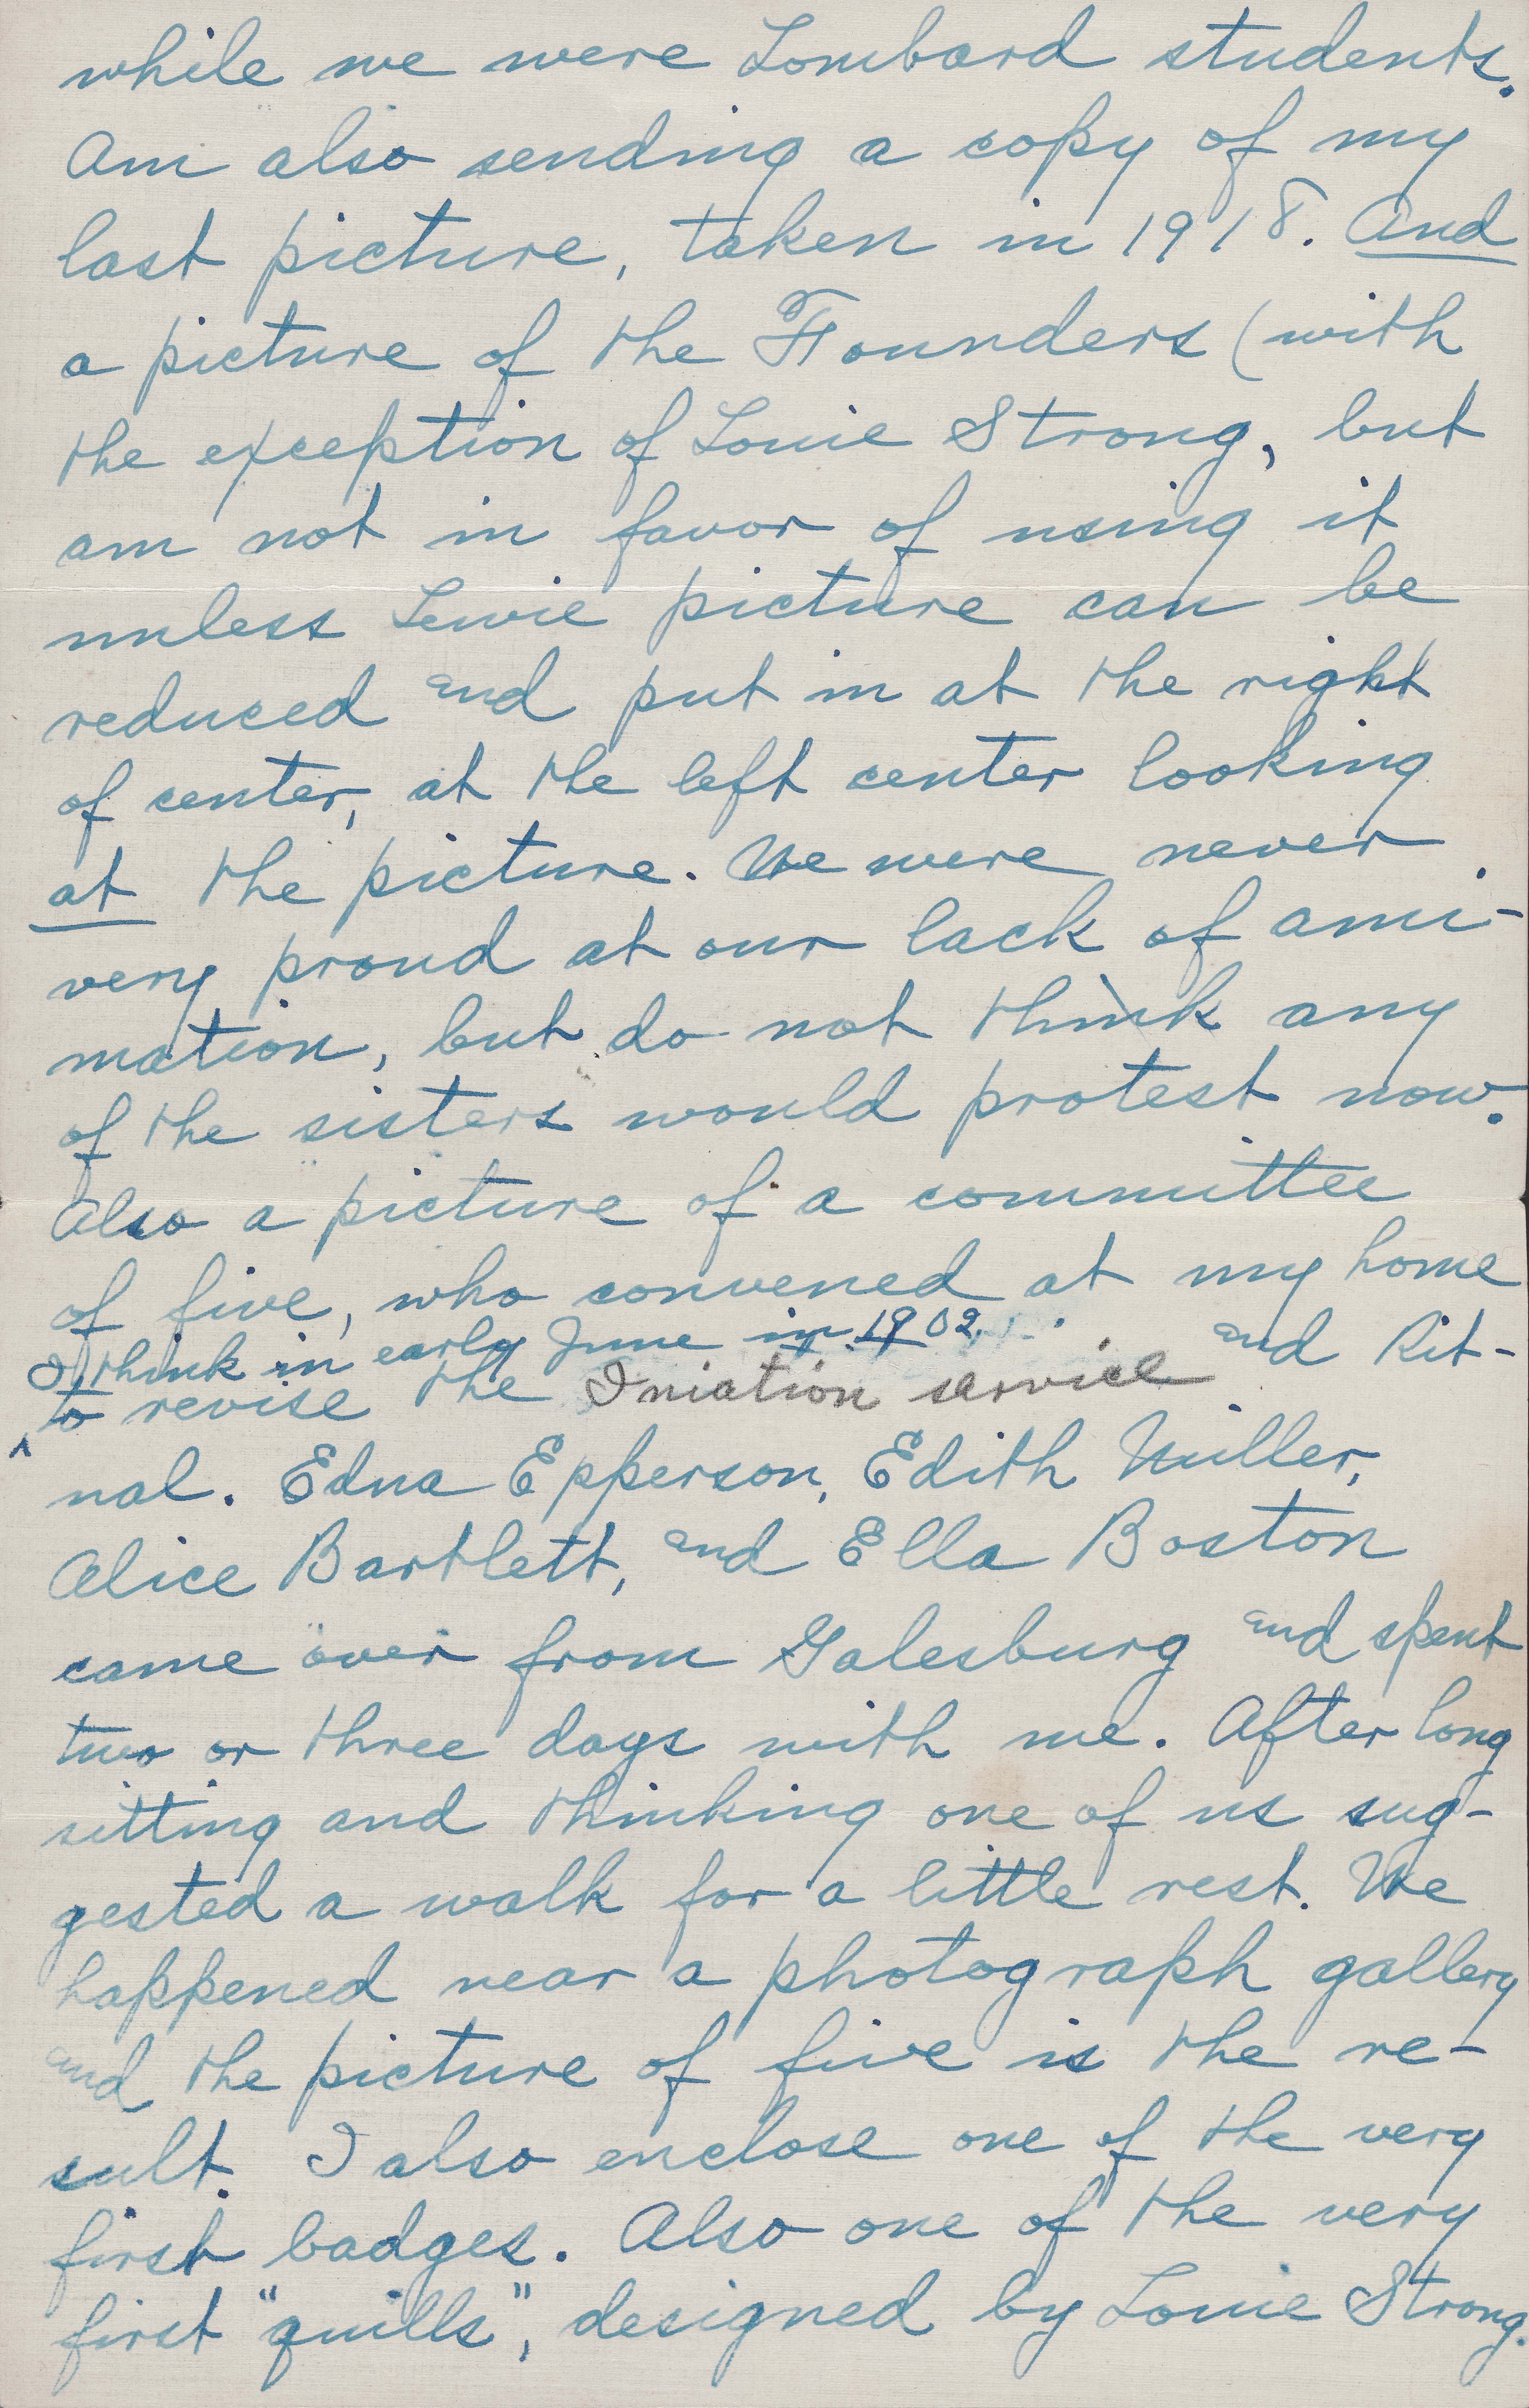 while we were Lombard students.
Am also sending a copy of my
last picture, taken in 1918. And
a picture of the Founders (with
the exception of Louie Strong, but
am not in favor of using it
unless Lewie picture can be
reduced and put in at the right
of center, at the left center looking
at the picture. We were never
very proud at our lack of ani-
mation, but do not think any
of the sisters would protest now.
Also a picture of a committee
of five, who convened at my home
I think in early June in 1902
to revise the Iniation service and Rit-
ual. Edna Epperson, Edith Miller,
Alice Bartlett, and Ella Boston
came over from Galesburg and spent
two or three days with me. After long
sitting and thinking one of us sug-
gested a walk for a little rest. We
happened near a photograph gallery
and the picture of five is the re-
sult. I also enclose one of the very
first badges. Also one of the very
first "quills", designed by Louie Strong.